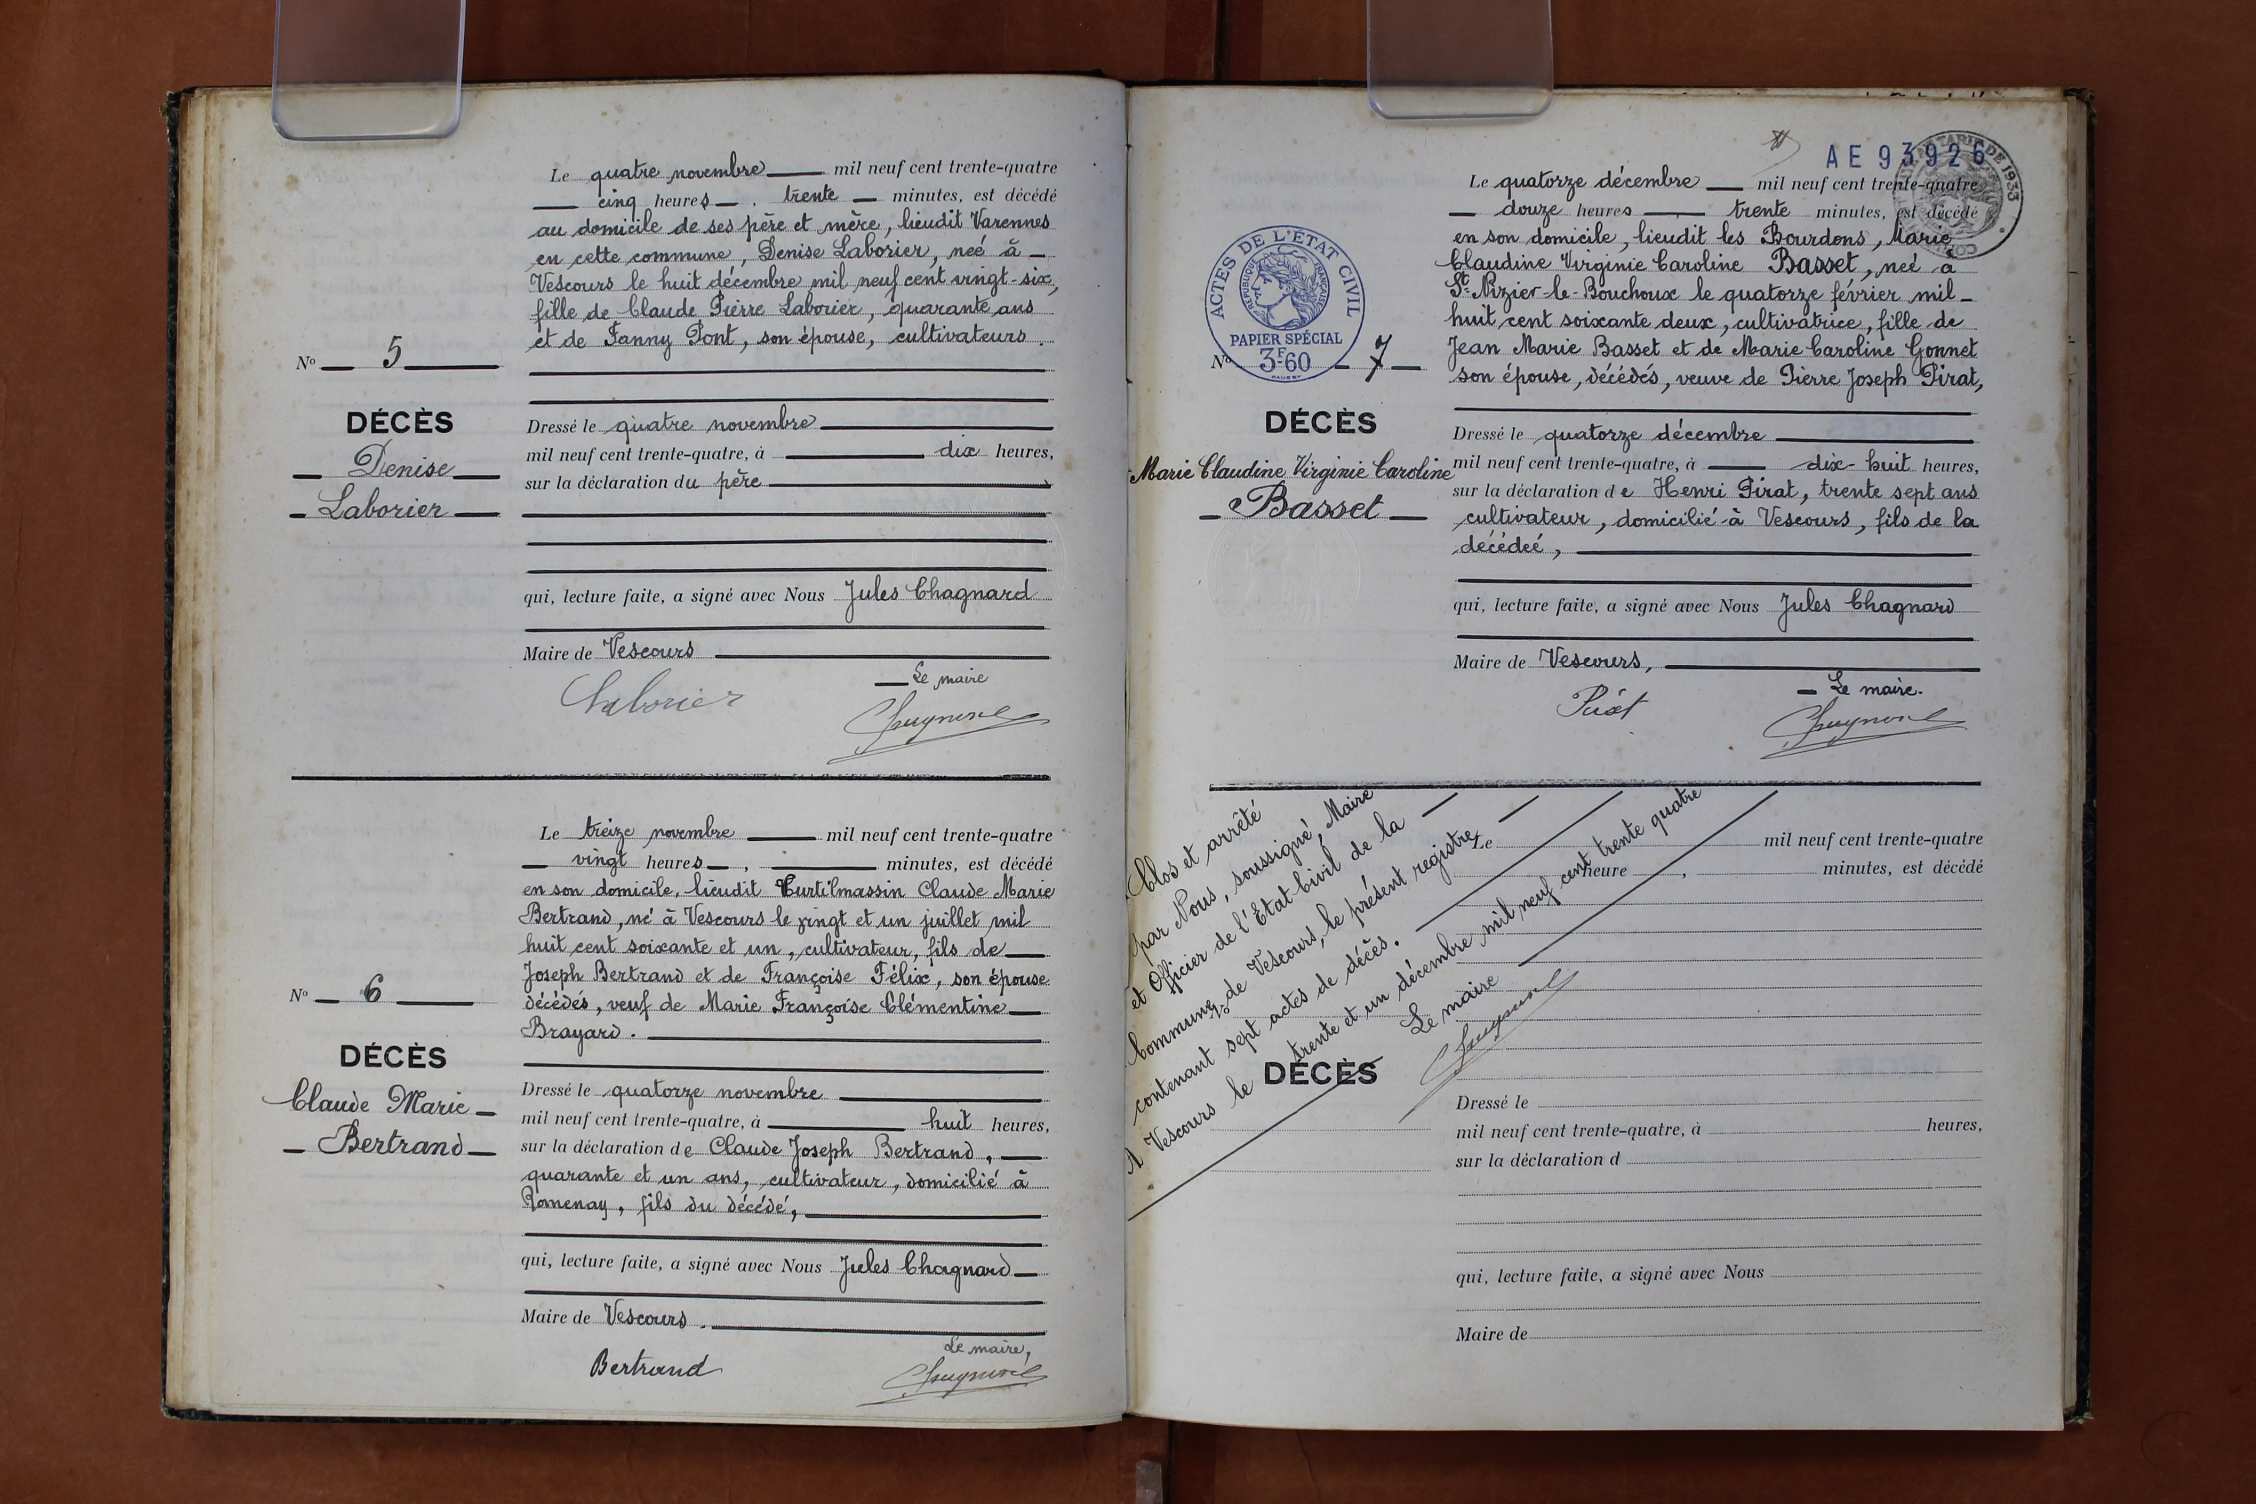 Le quatre novembre mil neuf cent trente-quatre
cinq heures. trente minutes, est décédé
au domicile de ses père et mère, lieudit Varennes
en cette commune, Denise Laborier, neé à
Vescours le huit décembre mil neuf cent vingt-six,
fille de Claude Pierre Laborier, quarante ans
et de Fanny Pont, son épouse, cultivateurs.
No 5
DÉCÈS
Denise
Laborier
Dressé le quatre novembre
mil neuf cent trente-quatre, à dix heures,
sur la déclaration du père
qui, lecture faite, a signé avec Nous Jules Chagnard
Maire de Vescours
Le maire
Laborier
Le treize novembre mil neuf cent trente-quatre
vingt heures, minutes, est décédé
en son domicile, lieudit Curtilmassin Claude Marie
Bertrand, né à Vescours le vingt et un juillet mil
huit cent soixante et un, cultivateur, fils de
Joseph Bertrand et de Françoise Félix, son épouse
décédés, veuf de Marie Françoise Clémentine
Brayard.
No 6
DÉCÈS
Claude Marie
Bertrand
Dressé le quatorze novembre
mil neuf cent trente-quatre, à huit heures,
sur la déclaration de Claude Joseph Bertrand,
quarante et un ans, cultivateur, domicilié à
Romenay, fils du décédé,
qui, lecture faite, a signé avec Nous Jules Chagnard
Maire de Vescours.
Le maire,
Bertrand
AE 93926
DE 1933
Le quatorze décembre mil neuf cent trente-quatre
douze heures trente minutes, est décédé
en son domicile, lieudit les Bourdons, Marie
Claudine Virginie Caroline Basset, neé à
St-Nizier-le-Bouchoux le quatorze février mil
huit cent soixante deux, cultivatrice, fille de
Jean Marie Basset et de Marie Caroline Gonnet
son épouse, décédés, veuve de Pierre Joseph Pirat,
ACTES DE L'ÉTAT CIVIL
RÉPUBLIQUE FRANÇAISE
PAPIER SPÉCIAL
3F60
No 7
DÉCÈS
Marie Claudine Virginie Caroline
Basset
Dressé le quatorze décembre
mil neuf cent trente-quatre, à dix-huit heures,
sur la déclaration de Henri Pirat, trente sept ans
cultivateur, domicilié à Vescours, fils de la
décédeé,
qui, lecture faite, a signé avec Nous Jules Chagnard
Maire de Vescours,
Le maire.
Pirat
Clos et arrêté
par Nous, soussigné, Maire
et Officier de l'Etat Civil de la
Commune de Vescours, le présent registre
contenant sept actes de décès.
A Vescours le trente et un décembre mil neuf cent trente quatre
Le maire
Le mil neuf cent trente-quatre
heure, minutes, est décédé
DÉCÈS
Dressé le
mil neuf cent trente-quatre, à heures,
sur la déclaration d
qui, lecture faite, a signé avec Nous
Maire de